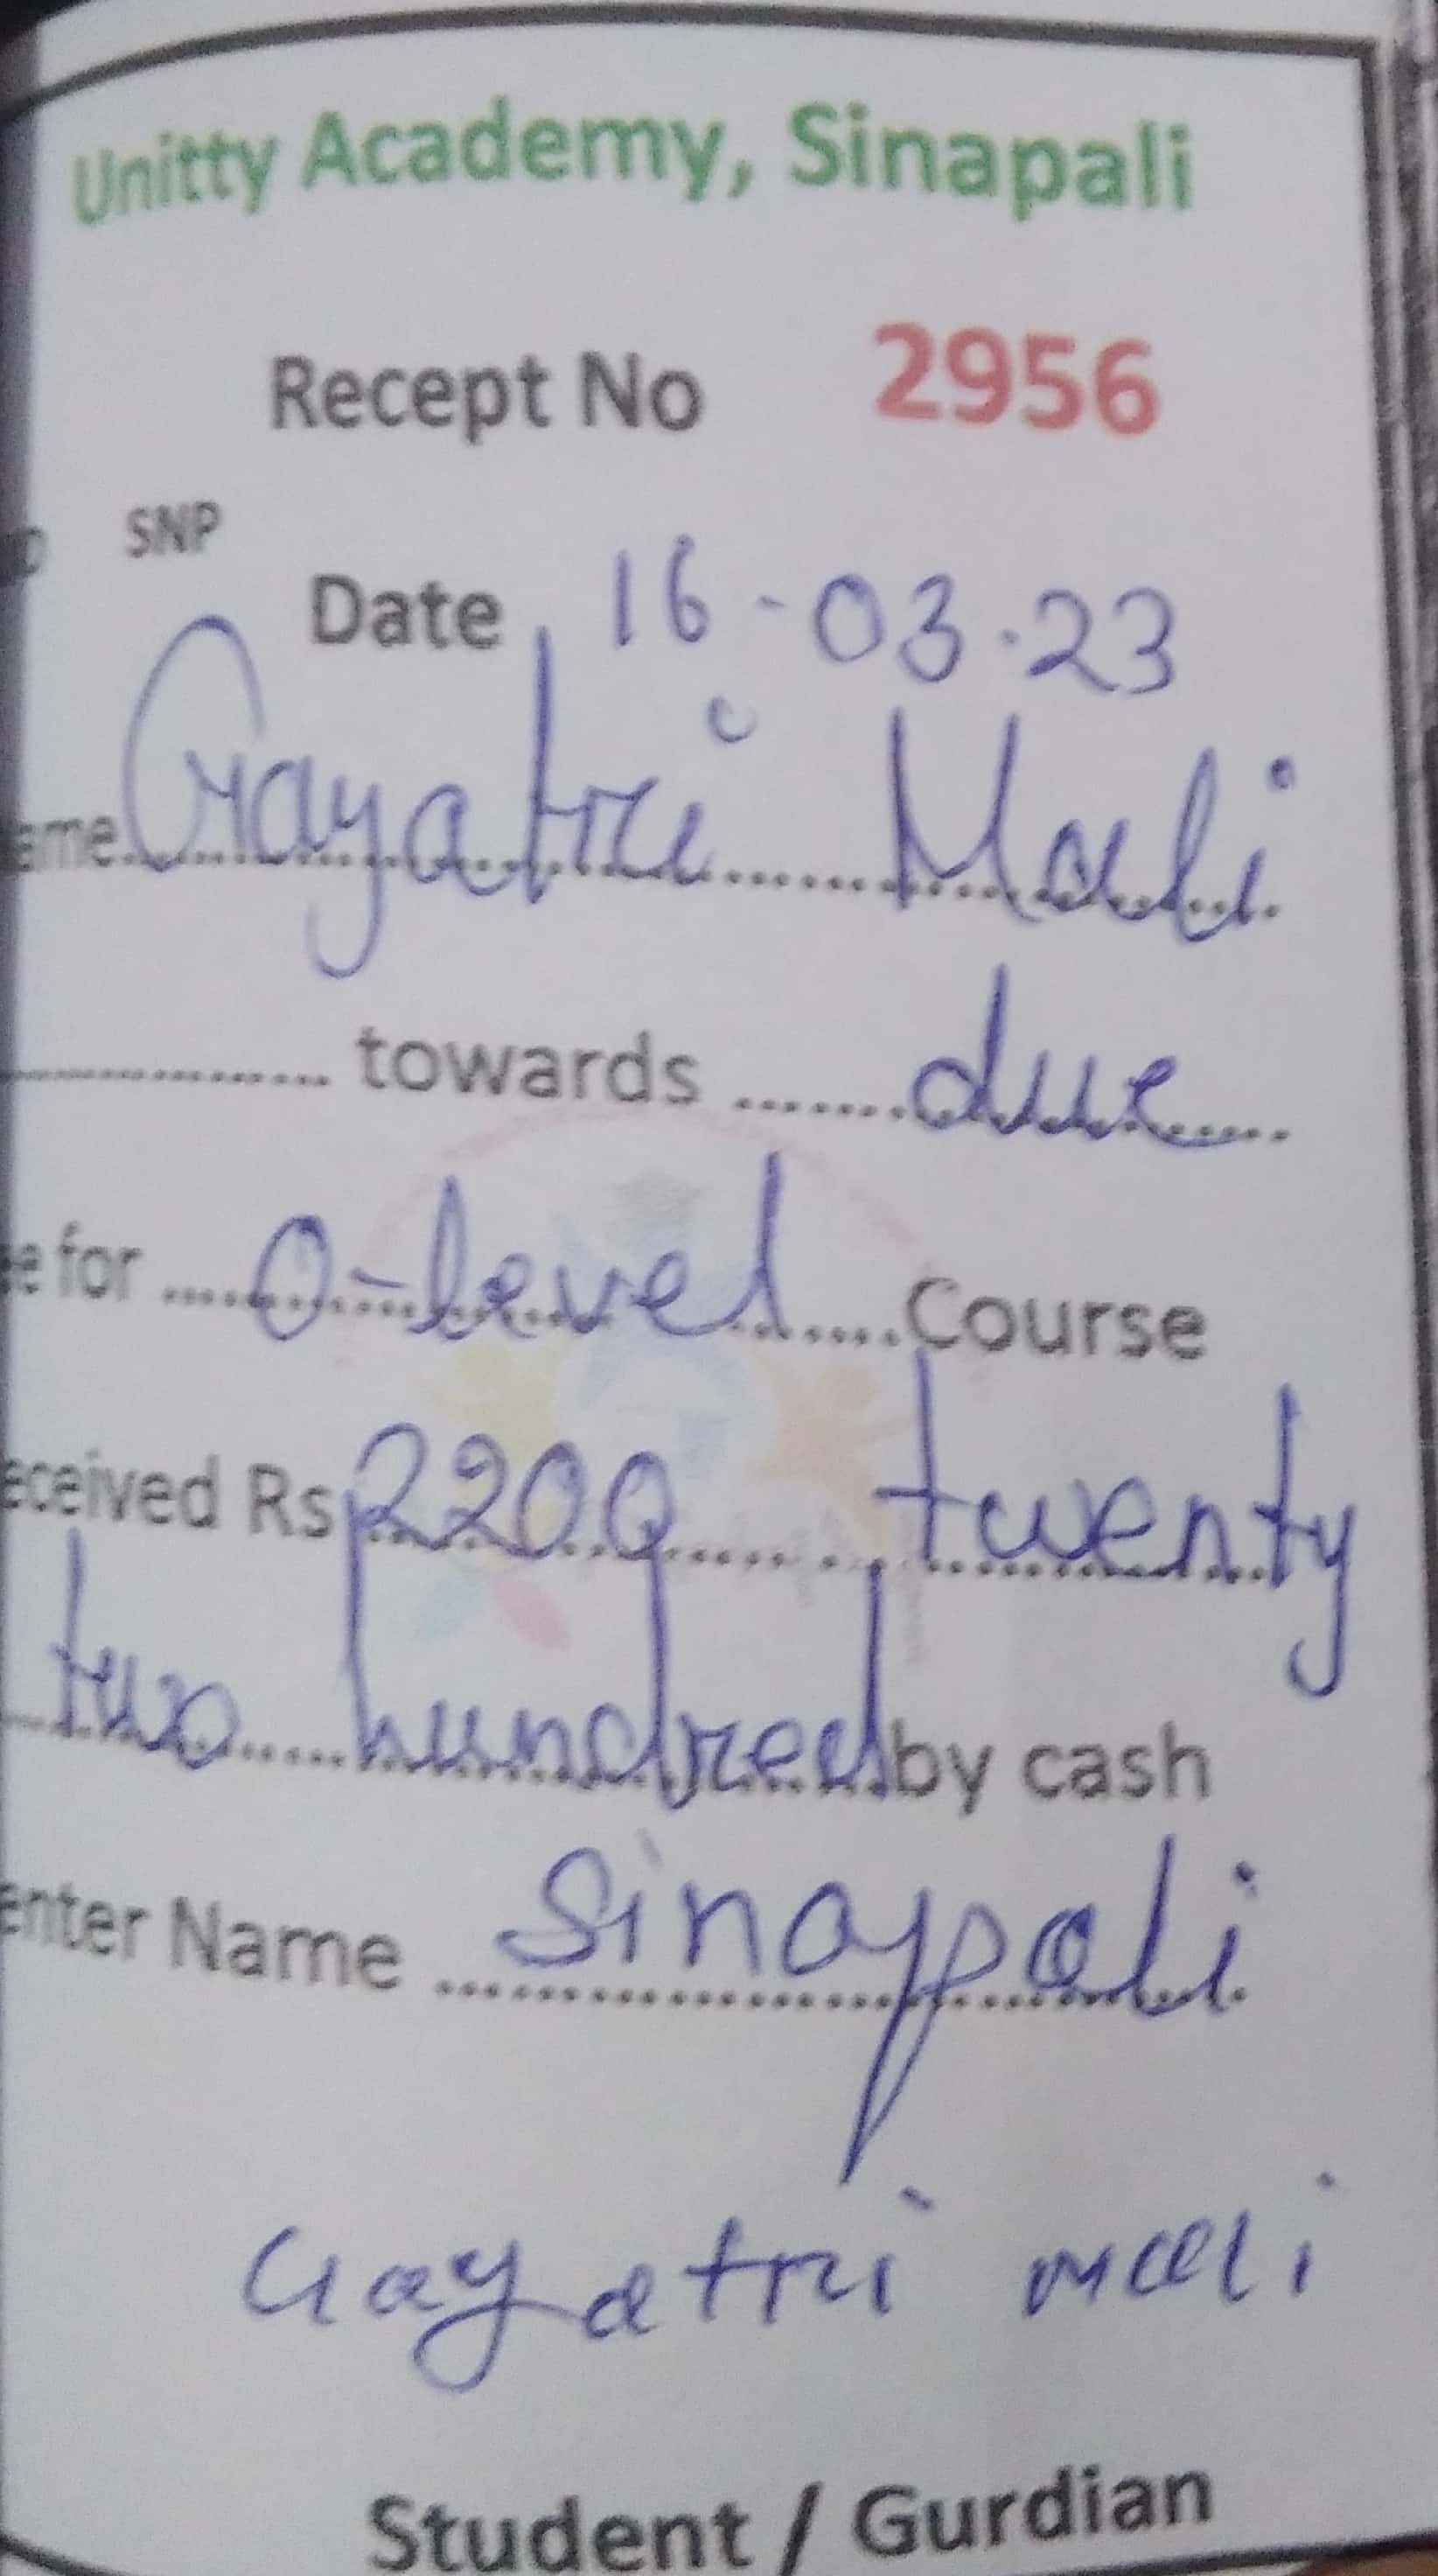 Unitty Academy, Sinapali
Recept No 2956
SNP
Date 16-03.23
ame Gayatri Mali
towards due
e for O-level Course
eceived Rs 2200 twenty
two hundred by cash
enter Name Sinapali
Gayatri Mali
Student / Gurdian